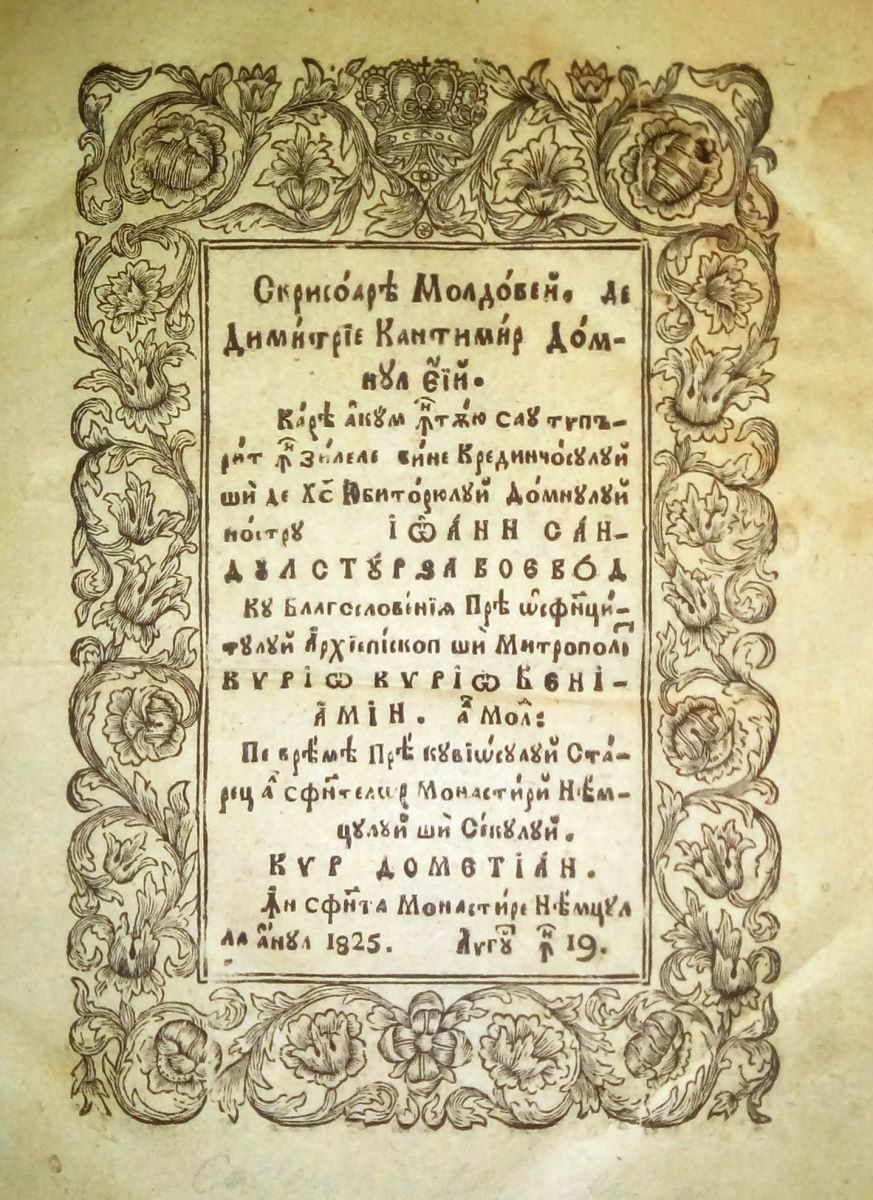 Скрисоарѣ Молдовей. де
Димитрїе Кантимир Дом-
нул Єїй.
Карѣ акум ꙟтѫю сау типъ-
рит ꙟ зилеле бине Крединчосулуй
ший де Хс҃ Юбиторюлуй Домнулуй
нострꙋ ІѠАНН САН-
ДУЛ СТУРЗА ВОЄВОД
Ку Благословенїѧ Прѣ ѡсфинци-
тулуй Архїєпископ ший Митрополит
КУРІѠ КУРІѠ ВЄНІ-
АМІН. а Мол:
Пе врѣмѣ Прѣ кувїѡсулуй Ста-
рец а сфинтелор Монастирй Нѣм-
цулуй ший Секулуй.
КУР ДОМЄТІАН.
Ꙟн сфинта Монастире Нѣмцул
ла анул 1825. Аугу ꙟ 19.